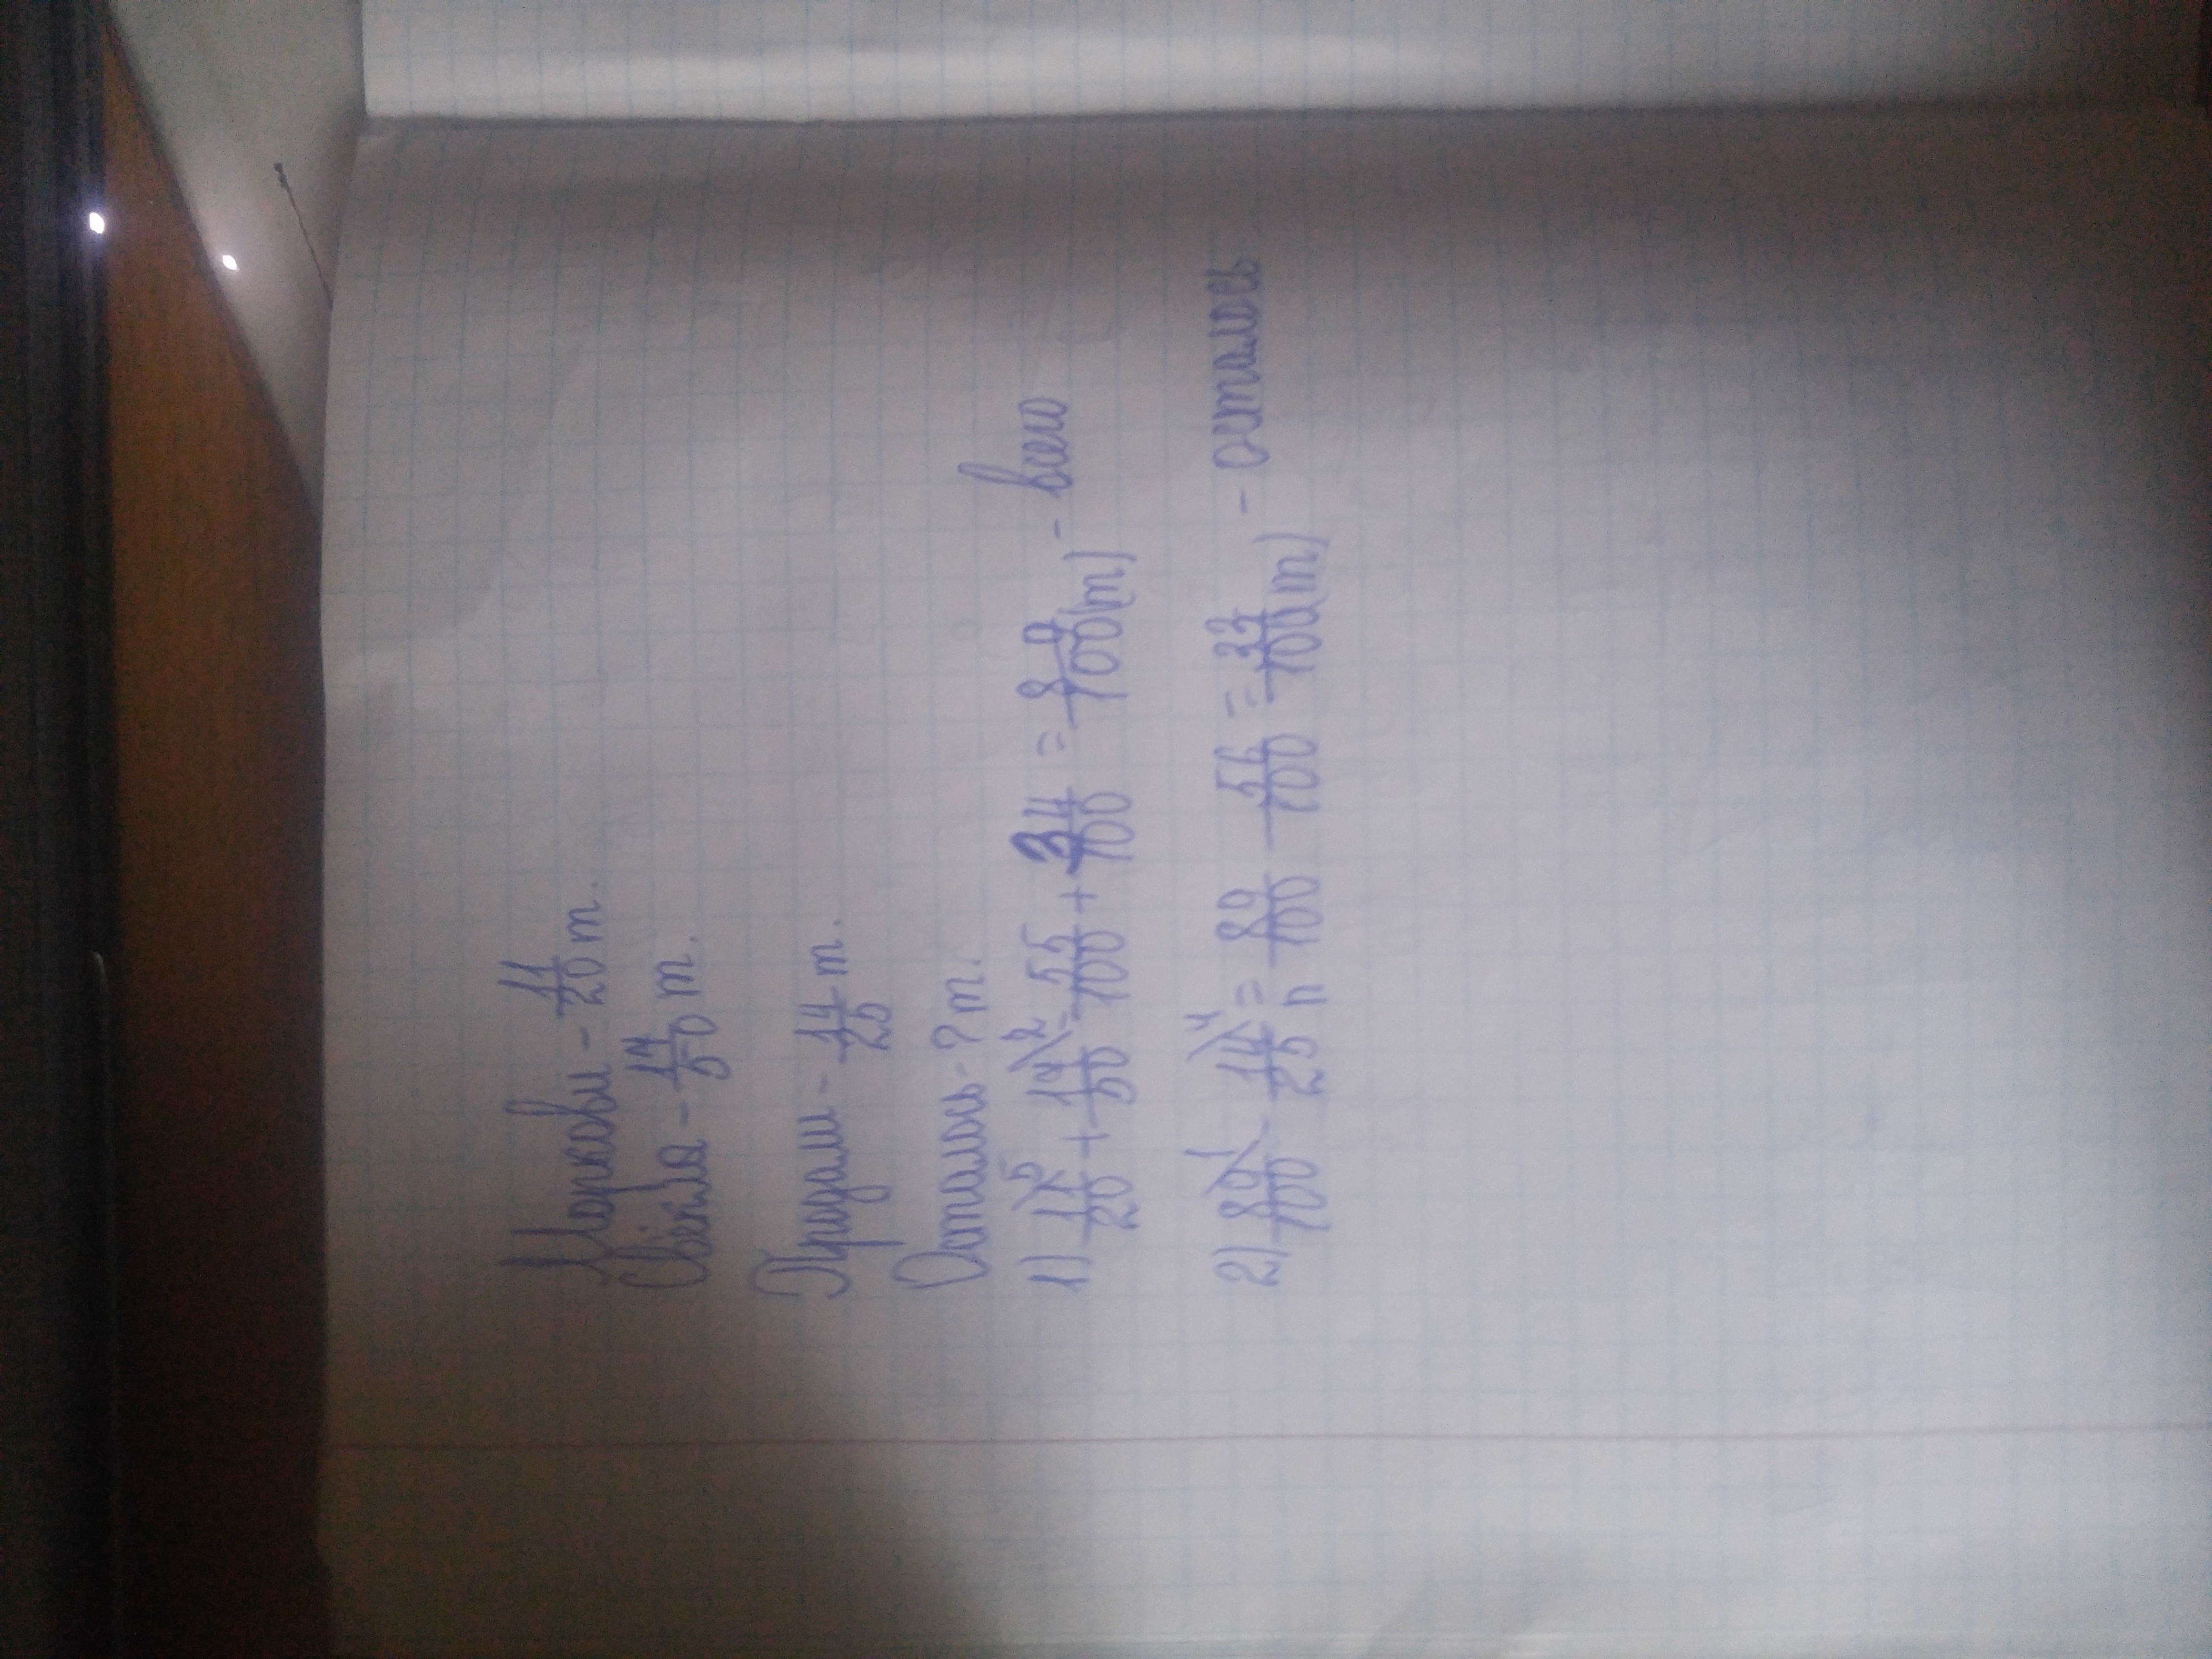 Моркови - 11/20 т.
Свёкла - 17/50 т.
Продали - 14/25 т.
Осталось - ? т.
1) 11/20 \5 + 17/50 \2 = 55/100 + 34/100 = 89/100 (т) - всего
2) 89/100 \1 - 14/25 \4 = 89/100 - 56/100 = 33/100 (т) - осталось